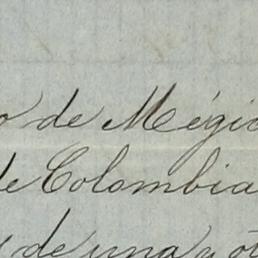 o de Mégic
de Colombia
y de una y ot